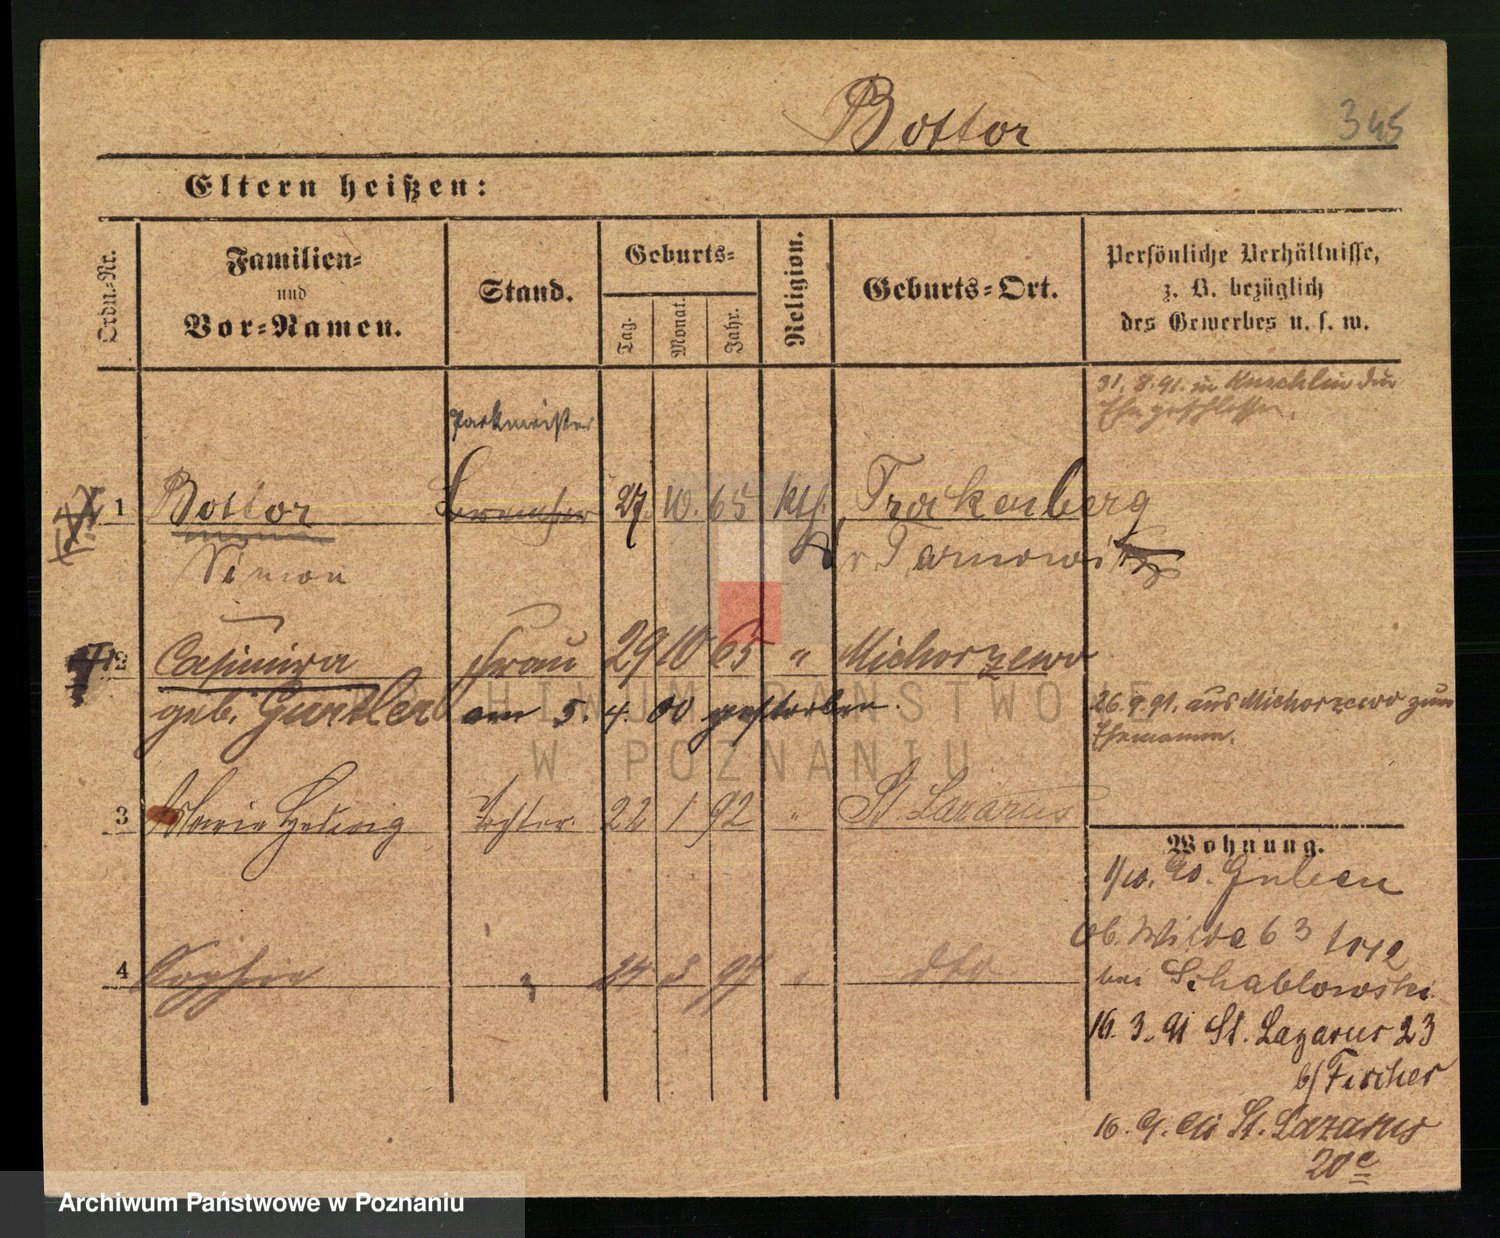 Bottor
345
Eltern heißen:
Ordn.-Nr.
Familien-
und
Vor-Namen.
Stand.
Geburts-
Tag.
Monat.
Jahr.
Religion.
Geburts-Ort.
Persönliche Verhältnisse,
z. B. bezüglich
des Gewerbes u. s. w.
31. 8. 91. in Kuschlin die
Ehe geschlossen.
Parkmeister
1 Bottor 27. 10. 65 kth. Trakenberg
Simon Tarnowitz
2 Casimira Frau 29 10 65 " Michorzewo
geb. Gurtler am 5. 4. 00 gestorben.
26. 9. 91. aus Michorzewo zum
Ehemann.
3 Marie Hedwig Tochter 22 1 92 " St Lazarus
4 Sophie " dto
Wohnung.
1/10. 90. Guben
ob. Wilda 63
bei Schablowski
16. 3. 91 St. Lazarus 23
b/ Fischer
16. 9. 91 St. Lazarus
20c
ARCHIWUM PAŃSTWOWE
W POZNANIU
Archiwum Państwowe w Poznaniu